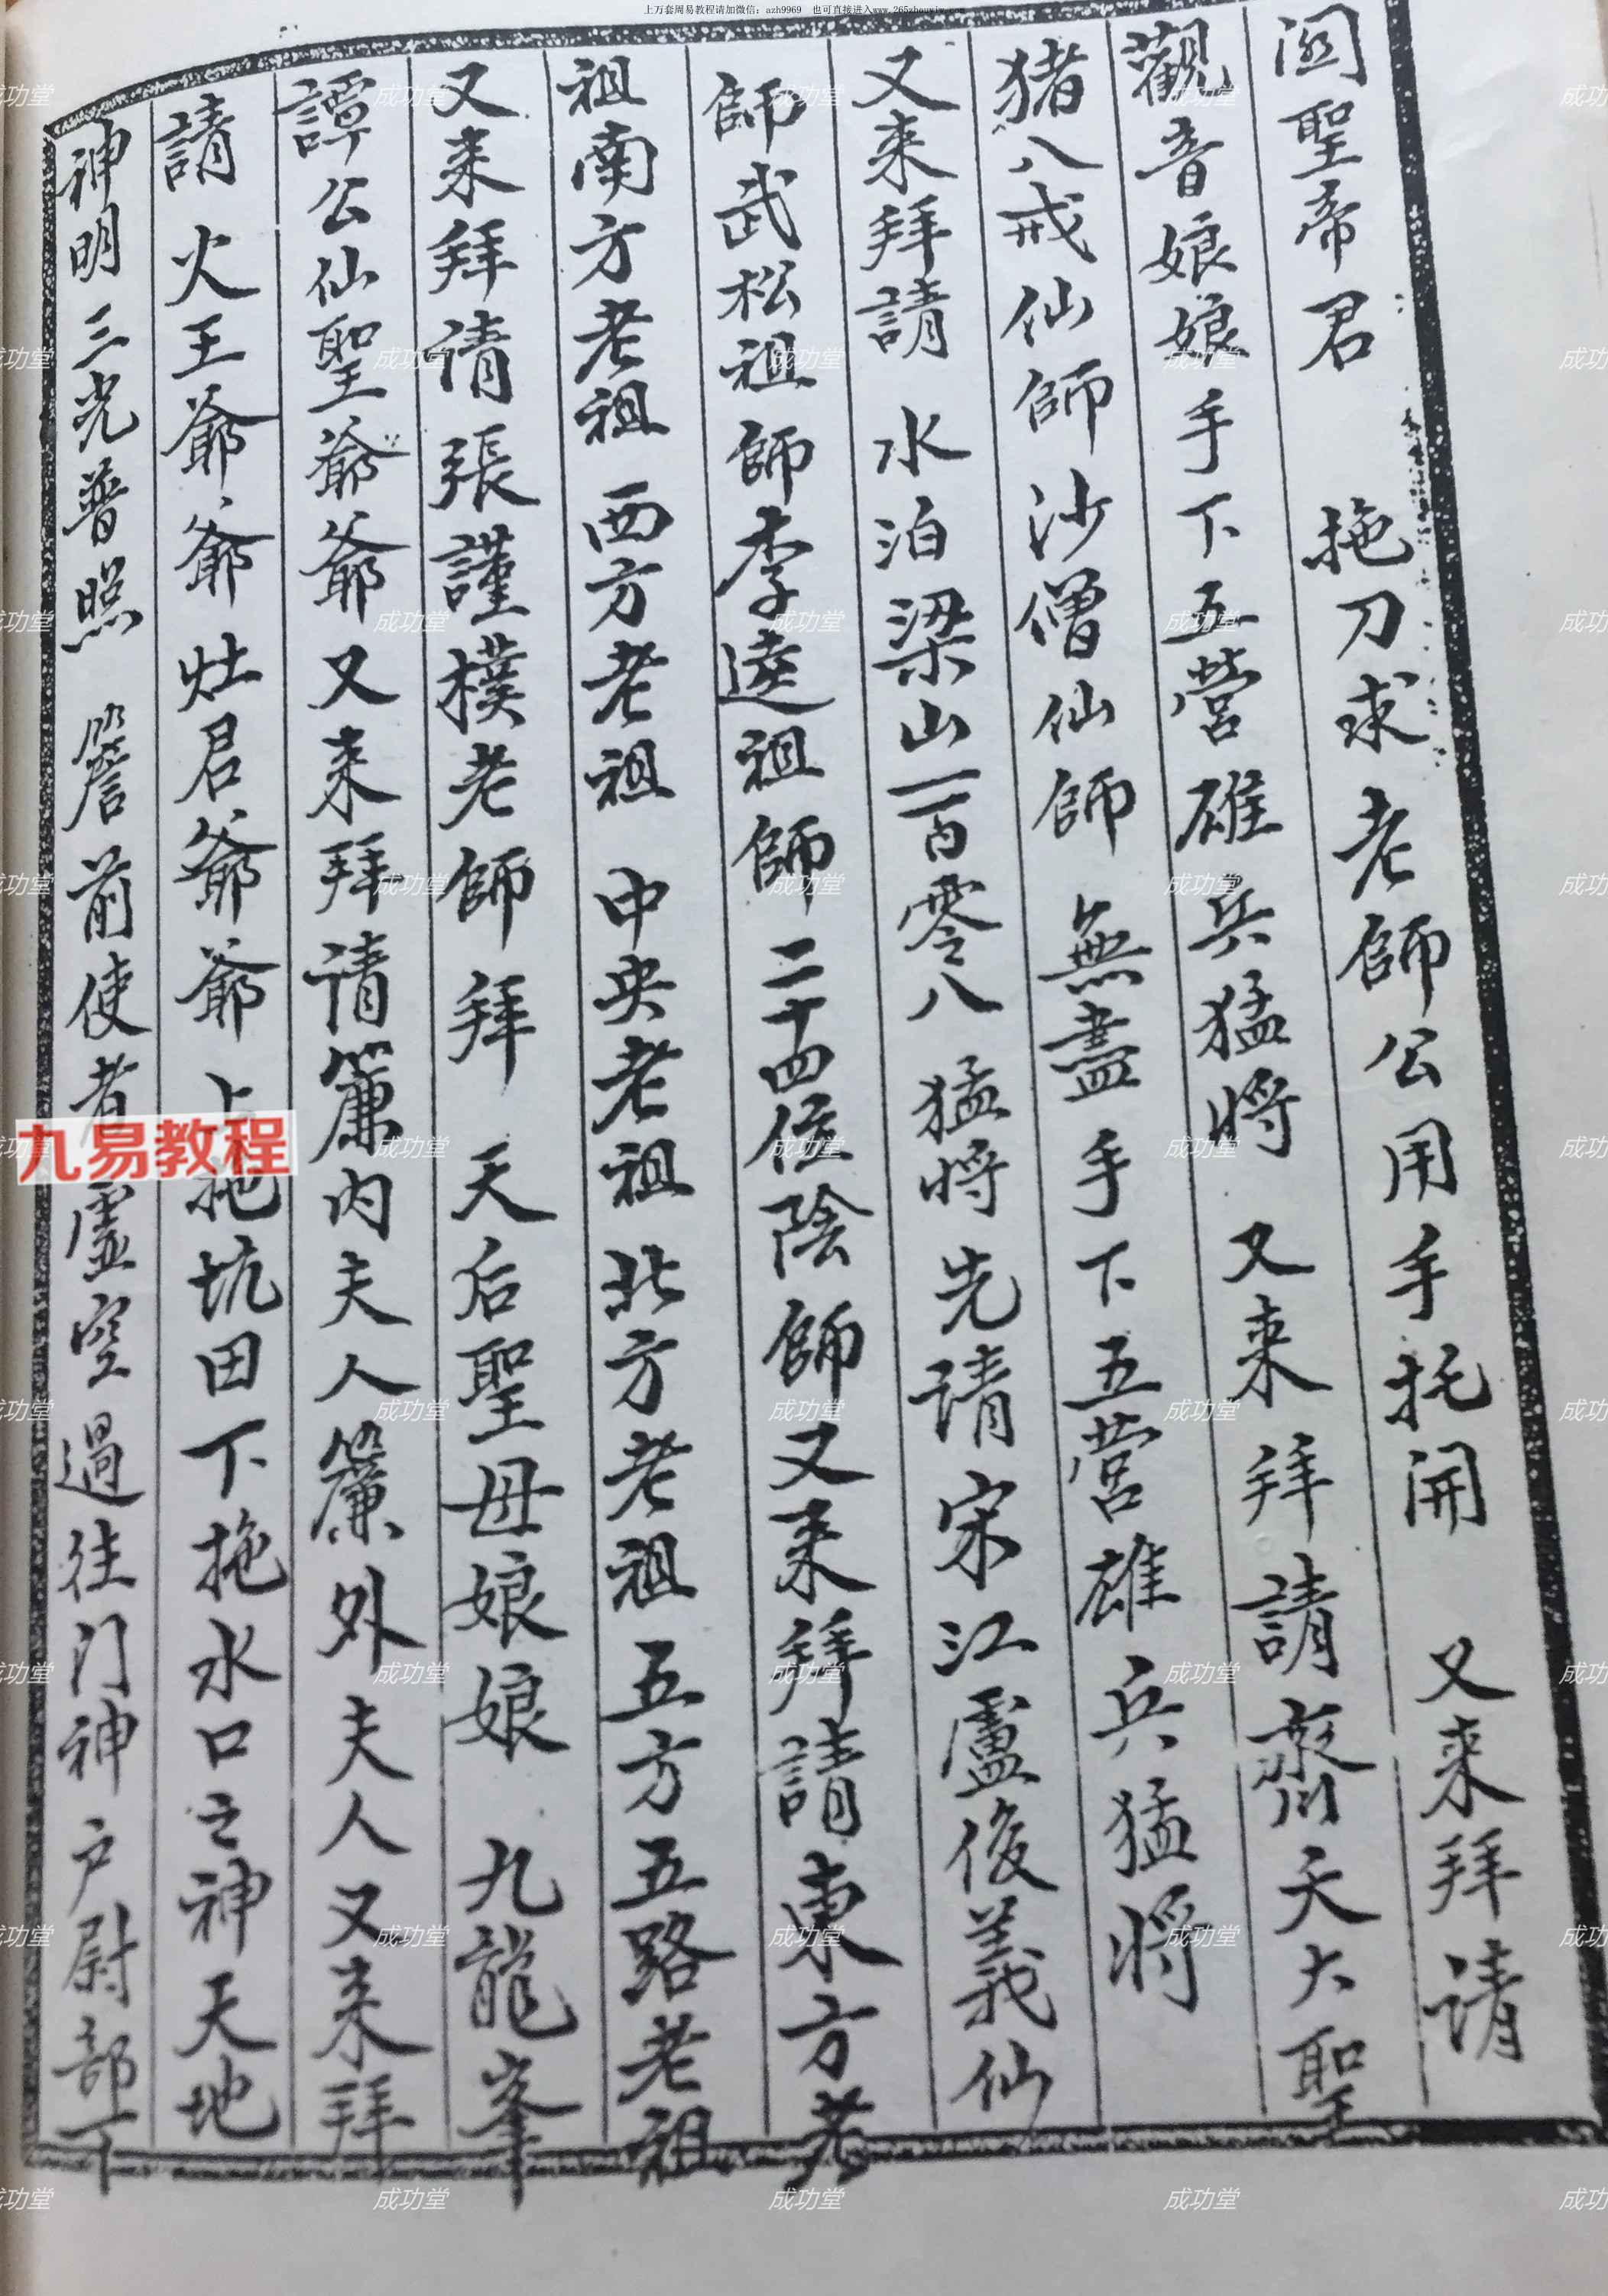 上万套周易教程请加微信：azh9969 也可直接进入www.265zhouyiw.com
关聖帝君 拖刀求老師公用手托開 又来拜请
觀音娘娘手下五營雄兵猛将 又来拜請齊天大聖
猪八戒仙師沙僧仙師 無盡手下五营雄兵猛将
又来拜請 水泊梁山一百零八 猛将先请宋江盧俊義仙
師武松祖師李逵祖師二十四位陰師又来拜請東方老
祖南方老祖 西方老祖 中央老祖北方老祖五方五路老祖
又来拜请張謹樸老師拜 天后聖母娘娘 九龍峯
譚公仙聖爺爺又来拜请簾内夫人簾外夫人又来拜
請火王爺爺灶君爺爺上拖坑田下拖水口之神天地
神明三光普照 簷前使者虚空過往门神户尉部下
九易教程
成功堂